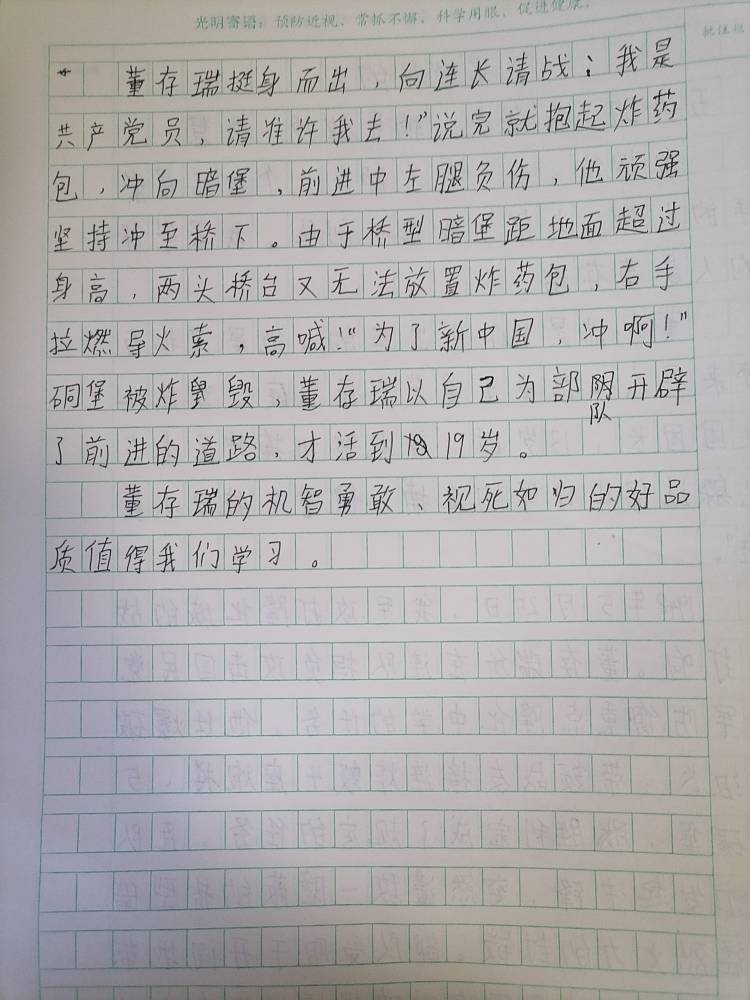 光明寄语：预防近视、常抓不懈，科学用眼、促进健康。
董存瑞挺身而出，向连长请战；我是
共产党员，请准许我去！”说完就抱起炸药
包，冲向暗堡，前进中左腿负伤，他顽强
坚持冲至桥下。由于桥型暗堡距地面超过
身高，两头桥台又无法放置炸药包，右手
拉燃导火索，高喊！“为了新中国，冲啊！”
碉堡被炸毁，董存瑞以自己为部队开辟
了前进的道路，才活到19岁。
董存瑞的机智勇敢、视死如归的好品
质值得我们学习。